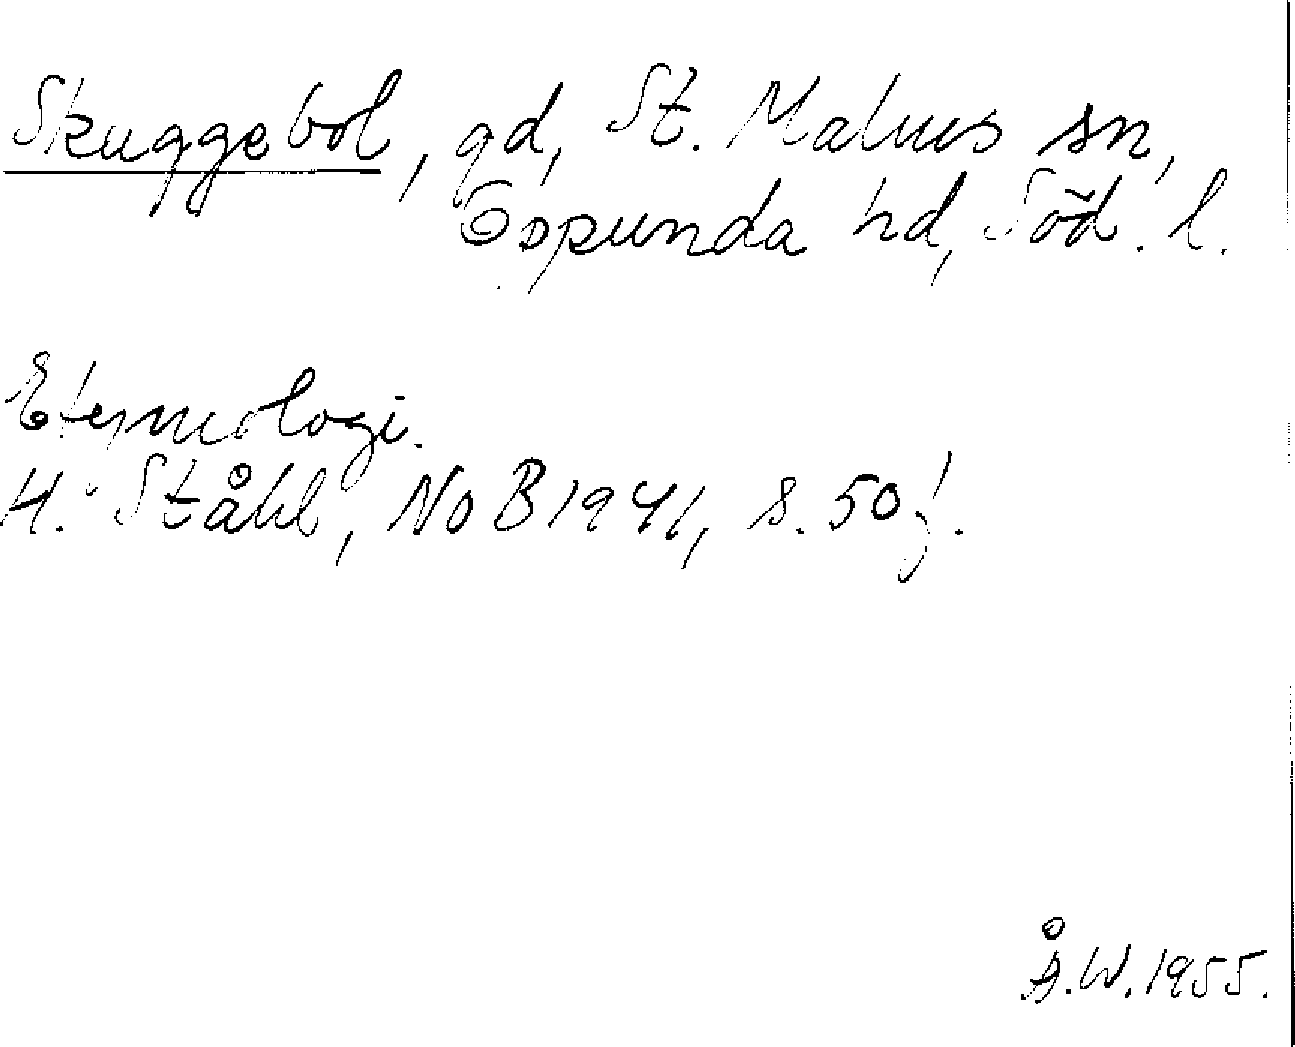 Skuggebol, gd, St. Malms sn,
Oppunda hd, Söd. l.
Etymologi.
H. Ståhl, NoB 1941, s. 50 f.
Å.W. 1955.